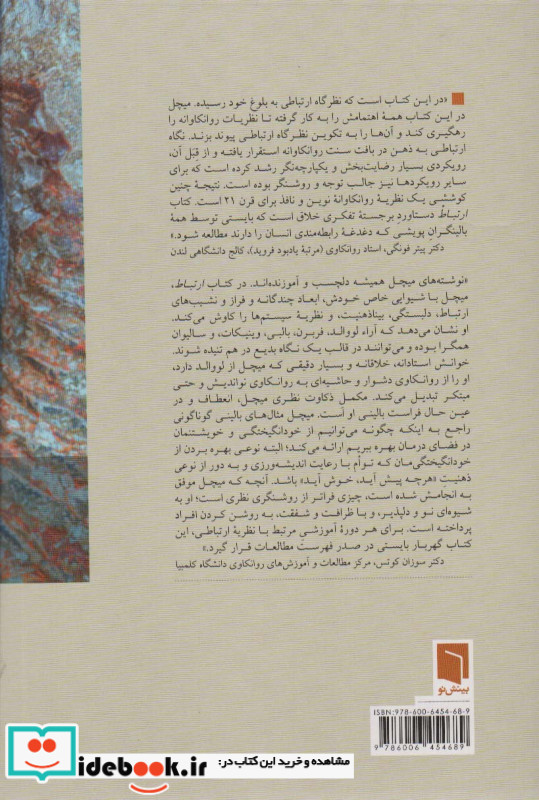 «در این کتاب است که نظرگاه ارتباطی به بلوغ خود رسیده. میچل
در این کتاب همهٔ اهتمامش را به کار گرفته تا نظریات روانکاوانه را
رهگیری کند و آن‌ها را به تکوین نظرگاه ارتباطی پیوند بزند. نگاه
ارتباطی به ذهن در بافت سنت روانکاوانه استقرار یافته و از قِبَل آن،
رویکردی بسیار رضایت‌بخش و یکپارچه‌نگر رشد کرده است که برای
سایر رویکردها نیز جالب توجه و روشنگر بوده است. نتیجهٔ چنین
کوششی یک نظریهٔ روانکاوانهٔ نوین و نافذ برای قرن ۲۱ است. کتاب
ارتباط دستاورد برجستهٔ تفکری خلاق است که بایستی توسط همهٔ
بالینگران پویشی که دغدغهٔ رابطه‌مندی انسان را دارند مطالعه شود.»
دکتر پیتر فونگی، استاد روانکاوی (مرتبهٔ یادبود فروید)، کالج دانشگاهی لندن
«نوشته‌های میچل همیشه دلچسب و آموزنده‌اند. در کتاب ارتباط،
میچل با شیوایی خاص خودش، ابعاد چندگانه و فراز و نشیب‌های
ارتباط، دلبستگی، بیناذهنیت، و نظریهٔ سیستم‌ها را کاوش می‌کند.
او نشان می‌دهد که آراء لووالد، فربرن، بالبی، وینیکات، و سالیوان
همگرا بوده و می‌توانند در قالب یک نگاه بدیع در هم تنیده شوند.
خوانش استادانه، خلاقانه و بسیار دقیقی که میچل از لووالد دارد،
او را از روانکاوی دشوار و حاشیه‌ای به روانکاوی نواندیش و حتی
مبتکر تبدیل می‌کند. مکمل ذکاوت نظری میچل، انعطاف و در
عین حال فراست بالینی او است. میچل مثال‌های بالینی گوناگونی
راجع به اینکه چگونه می‌توانیم از خودانگیختگی و خویشتنمان
در فضای درمان بهره ببریم ارائه می‌کند؛ البته نوعی بهره بردن از
خودانگیختگی‌مان که توأم با رعایت اندیشه‌ورزی و به دور از نوعی
ذهنیت «هرچه پیش آید، خوش آید» باشد. آنچه که میچل موفق
به انجامش شده است، چیزی فراتر از روشنگری نظری است؛ او به
شیوه‌ای نو و دلپذیر، و با ظرافت و شفقت، به روشن کردن افراد
پرداخته است. برای هر دورهٔ آموزشی مرتبط با نظریهٔ ارتباطی، این
کتاب گهربار بایستی در صدر فهرست مطالعات قرار گیرد.»
دکتر سوزان کوتس، مرکز مطالعات و آموزش‌های روانکاوی دانشگاه کلمبیا
بینش‌نو
ISBN: 978-600-6454-68-9
9 786006 454689
مشاهده و خرید این کتاب در:
idebook.ir